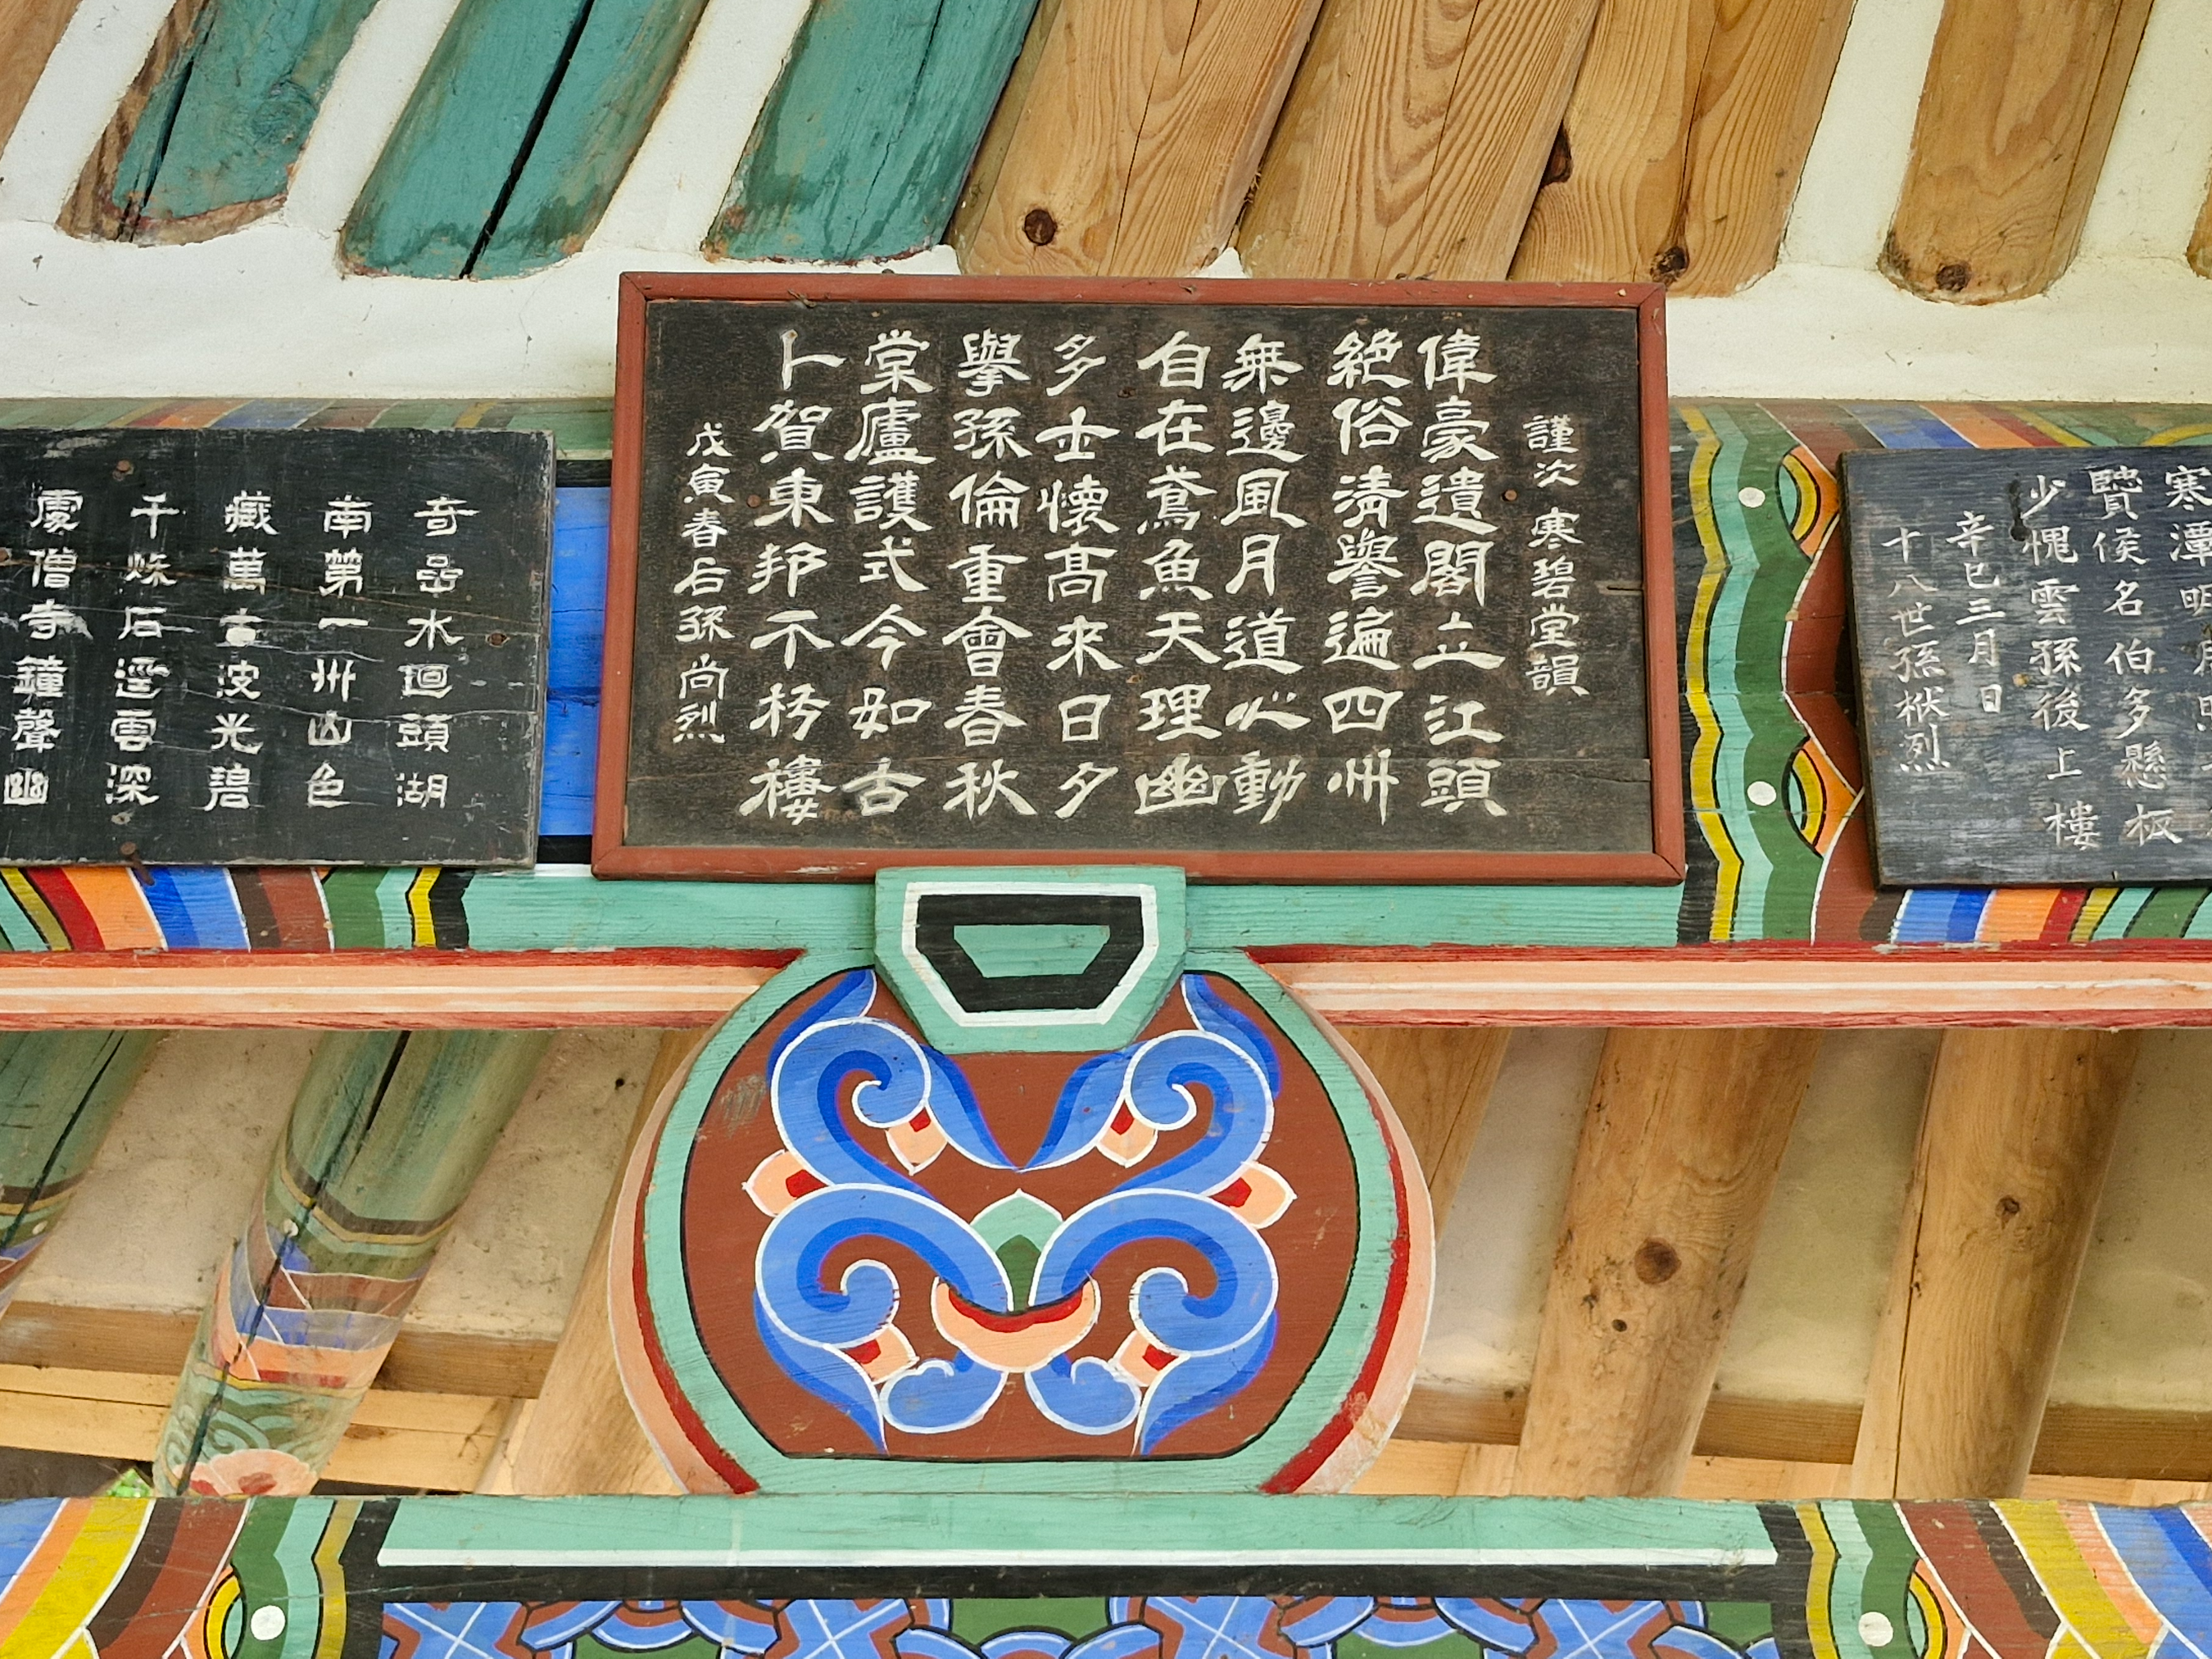 寒潭明
賢侯名伯多懸板
少愧雲孫後上樓
辛巳三月日
十八世孫烈
謹次寒碧堂韻
偉豪遺閣立江頭
絶俗淸譽遍四州
無邊風月道心動
自在鳶魚天理幽
多士懷高來日夕
擧孫倫重會春秋
棠廬護式今如古
卜賀東邦不朽樓
戊寅春后孫尚烈
奇嵒水迴頭湖
南第一州山色
藏萬古波光碧
千秌石逕雲深
處僧寺鐘聲幽